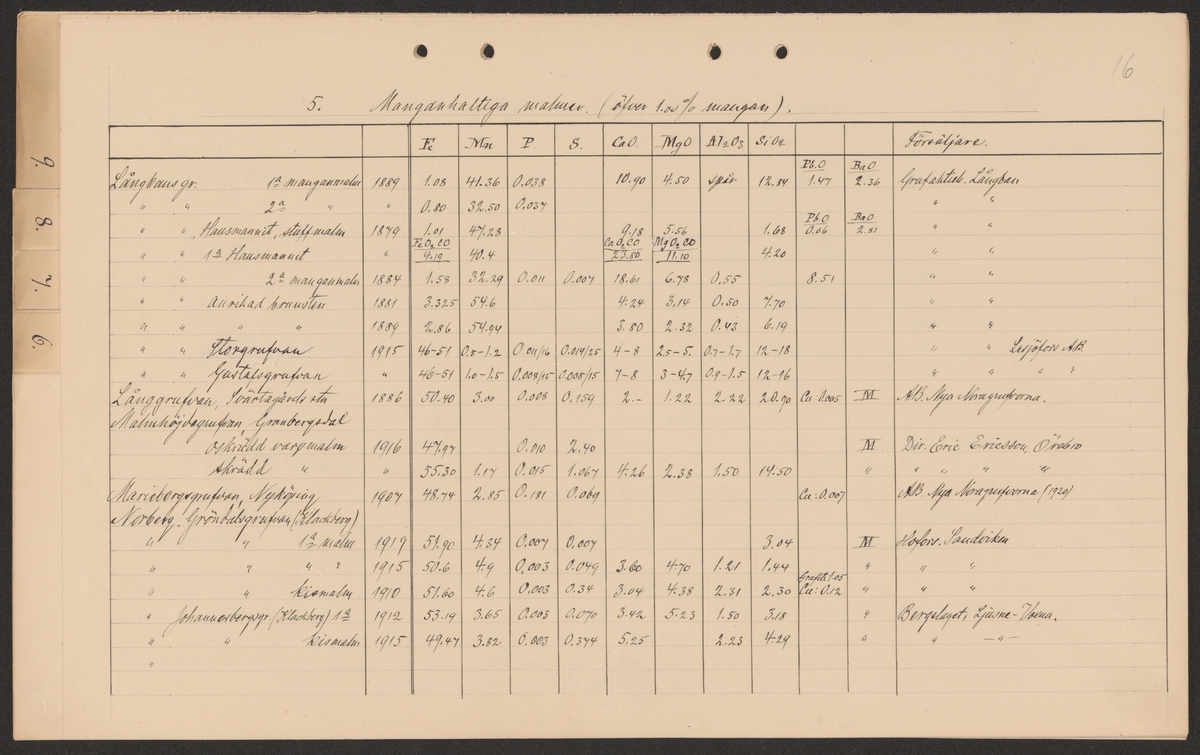 16
5. Manganhaltiga malmer. (öfver 1.00 % mangan).
Fe Mn P. S. CaO. MgO Al2O3 SiO2 Försäljare.
PbO BaO
Långbans gr. 1a manganmalm 1889 1.08 41.36 0.038 10.90 4.50 spår 12.84 1.47 2.36 Grufaktieb. Långban
" " 2a " " 0.80 32.50 0.037 " "
PbO BaO
" " Hausmannit, stuffmalm 1879 1.01 47.28 9.18 5.56 1.68 0.06 2.81 " "
FeO2CO CaO2CO MgO2CO
" " 1a Hausmannit " 4.19 40.4 23.80 11.10 4.20 " "
" " 2a manganmalm 1884 1.58 32.29 0.011 0.007 18.61 6.78 0.55 8.51 " "
" " Anrikad brunsten 1881 3.325 54.6 4.24 3.14 0.50 7.70 " "
" " " " 1889 2.86 54.94 3.80 2.32 0.43 6.19 " "
" " Storgrufvan 1915 46-51 0.5-1.2 0.011/16 0.014/25 4-8 2.5-5. 0.7-1.7 12-18 " " Lesjöfors A.B.
" " Gustafsgrufvan " 46-51 1.0-1.5 0.008/15 0.005/15 7-8 3-4.7 0.9-1.5 12-16 " " " "
Långgrufvan, Svartagårds 1886 50.40 3.00 0.008 0.159 2.- 1.22 2.22 20.90 Cu: 0.005 M A.B. Nya Noragrufvorna.
Malmhöjdsgrufvan, Granbergsdal
oskrädd varpmalm 1916 47.97 0.010 2.40 M Dir. Eric Ericsson, Örebro
skrädd " " 55.30 1.17 0.015 1.067 4.26 2.38 1.50 14.50 " " " " "
Mariebergsgrufvan, Nyköping 1907 48.74 2.85 0.181 0.069 Cu: 0.007 A.B. Nya Noragrufvorna (1920)
Norberg. Gröndalsgrufvan (Klackberg)
" " 1a malm 1919 51.90 4.34 0.007 0.007 3.04 M Hofors. Sandviken
" " " " 1915 50.6 4.9 0.003 0.049 3.60 4.70 1.21 1.44 " " "
Grafit: 1.05
" " kismalm 1910 51.60 4.6 0.003 0.34 3.04 4.38 2.31 2.30 Cu: 0.12 " " "
" Johannesbergsgr. (Klackberg) 1a 1912 53.19 3.65 0.003 0.070 3.42 5.23 1.50 3.18 " Bergslaget, Ljusne-Voxna.
" " kismalm 1915 49.47 3.82 0.003 0.374 5.25 2.23 4.29 " " —"—
"
9.
8.
7.
6.